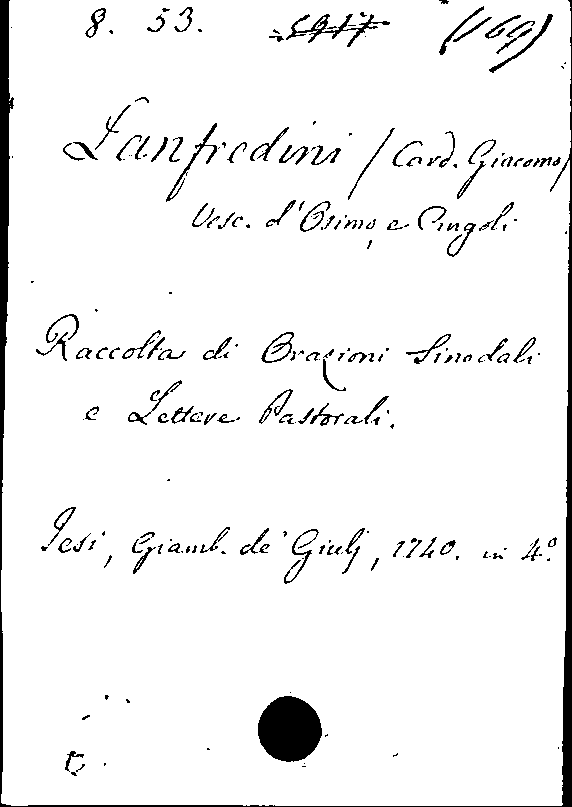 8. 53. 5917 (169)
Lanfredini / Card. Giacomo /
Vesc. d'Osimo, e Cingoli
Raccolta di Orazioni Sinodali
e Lettere Pastorali.
Jesi, Giamb. de' Giulj, 1740. in 4º.